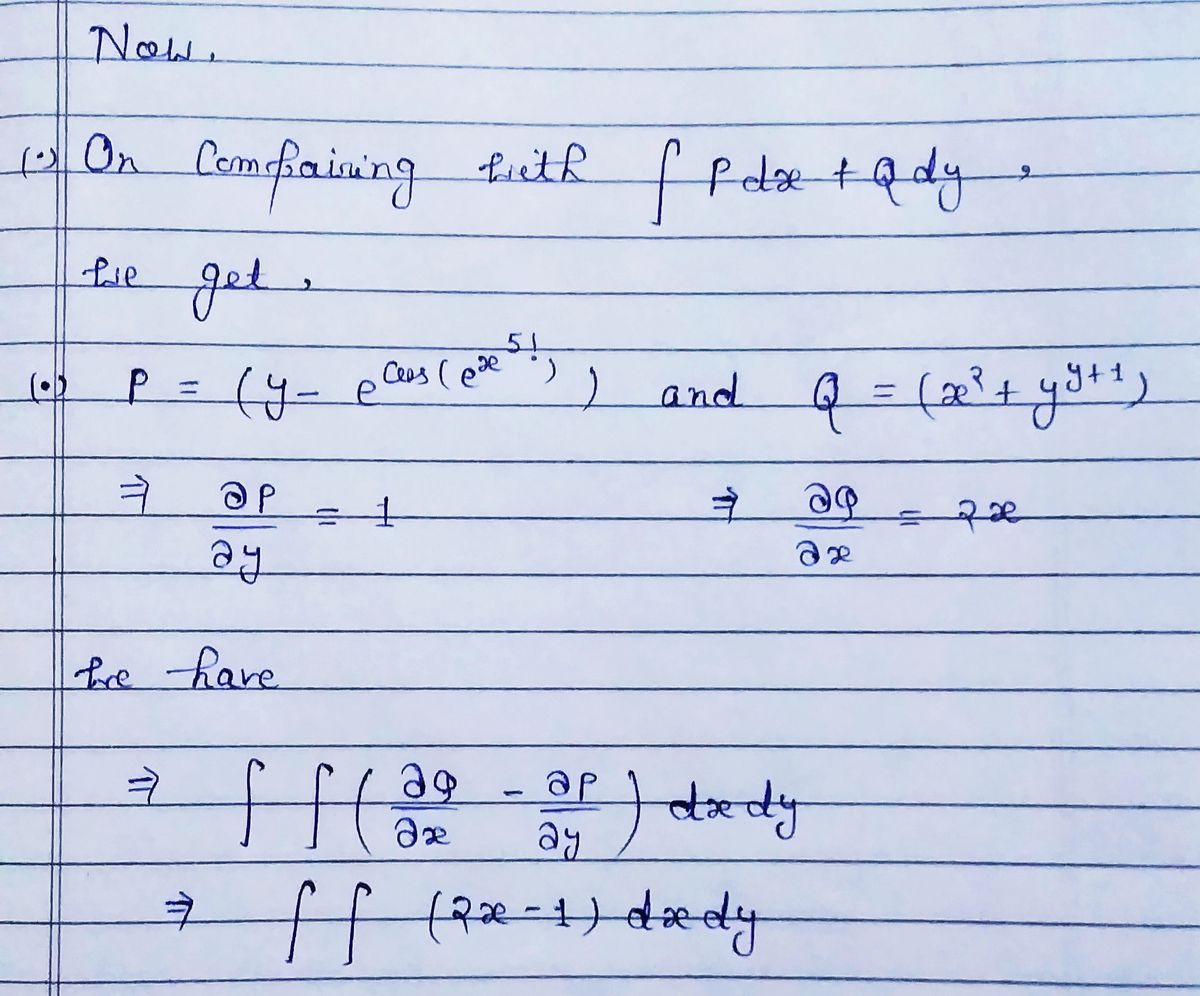 Now,
(•) On Compairing with ∫ P dx + Q dy ,
we get ,
(•) P = (y - e^{Cos(e^{x^{5!}})}) and Q = (x² + y^{y+1})
⇒ ∂P/∂y = 1 ⇒ ∂Q/∂x = 2x
we have
⇒ ∫ ∫ ( ∂Q/∂x - ∂P/∂y ) dx dy
⇒ ∫ ∫ (2x - 1) dx dy